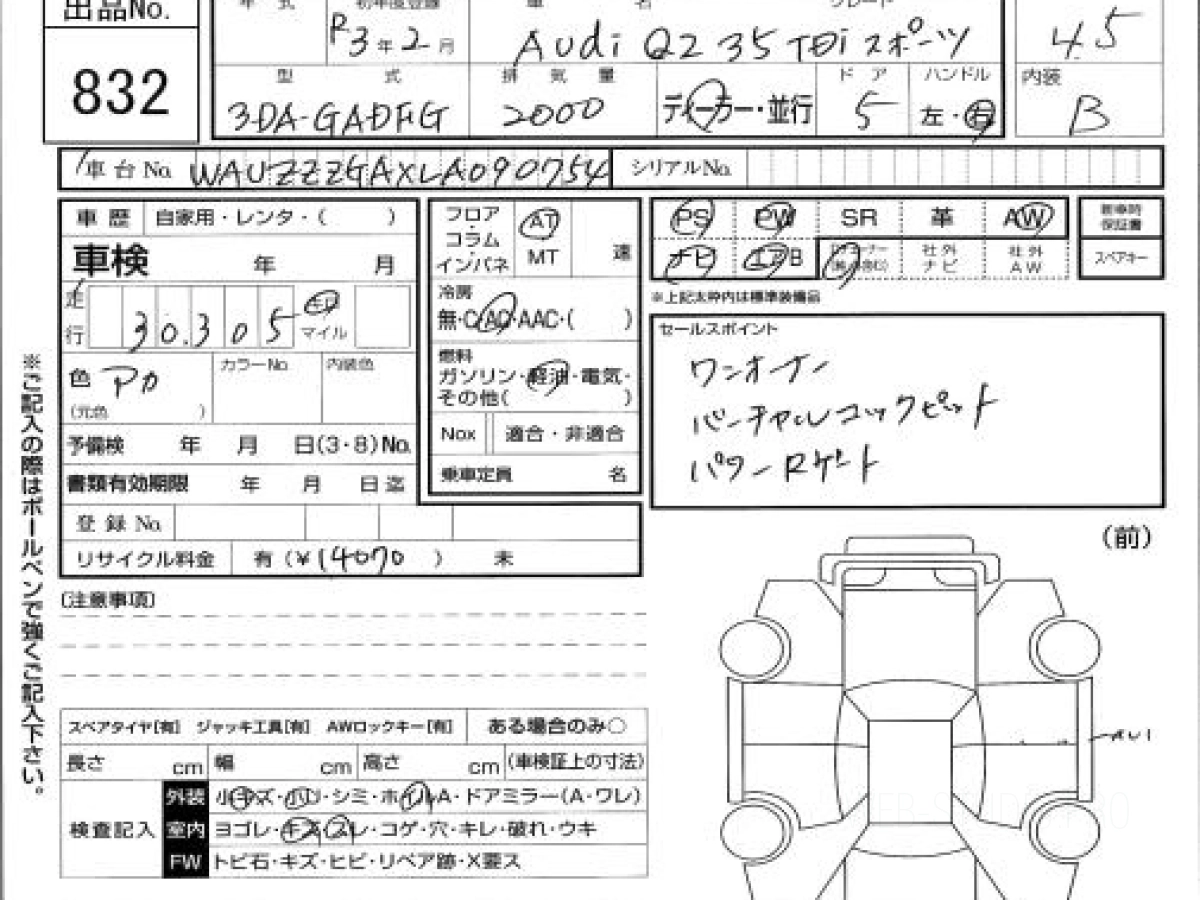 出品No.
832
年 式 初年度登録 車 名 グレード
R3年2月 Audi Q2 35 TDi スポーツ 4.5
型 式 排 気 量 ディーラー・並行 ド ア ハンドル 内装
3DA-GADFG 2000 5 左・右 B
車台No. WAUZZZGAXLA090754 シリアルNo.
車 歴 自家用・レンタ・( )
車検 年 月
走行 30.305 キロ マイル
色 カラーNo. 内装色
(元色 )
予備検 年 月 日(3・8)No.
書類有効期限 年 月 日迄
登 録 No.
リサイクル料金 有(¥14070 ) 未
フロア・コラム・インパネ AT MT 速
冷房
無・C・AC・AAC・( )
燃料
ガソリン・軽油・電気・
その他( )
Nox 適合・非適合
乗車定員 名
PS PW SR 革 AW 新車時保証書
ナビ エアB 社外ナビ 社外AW スペアキー
※上記太枠内は標準装備品
セールスポイント
ワンオーナー
バーチャルコックピット
パワーゲート
(前)
〔注意事項〕
スペアタイヤ[有] ジャッキ工具[有] AWロックキー[有] ある場合のみ○
長さ cm 幅 cm 高さ cm (車検証上の寸法)
検査記入
外装 小キズ・小凹・シミ・ホイルA・ドアミラー(A・ワレ)
室内 ヨゴレ・キズ・スレ・コゲ・穴・キレ・破れ・ウキ
FW トビ石・キズ・ヒビ・リペア跡・X要ス
※ご記入の際はボールペンで強くご記入下さい。